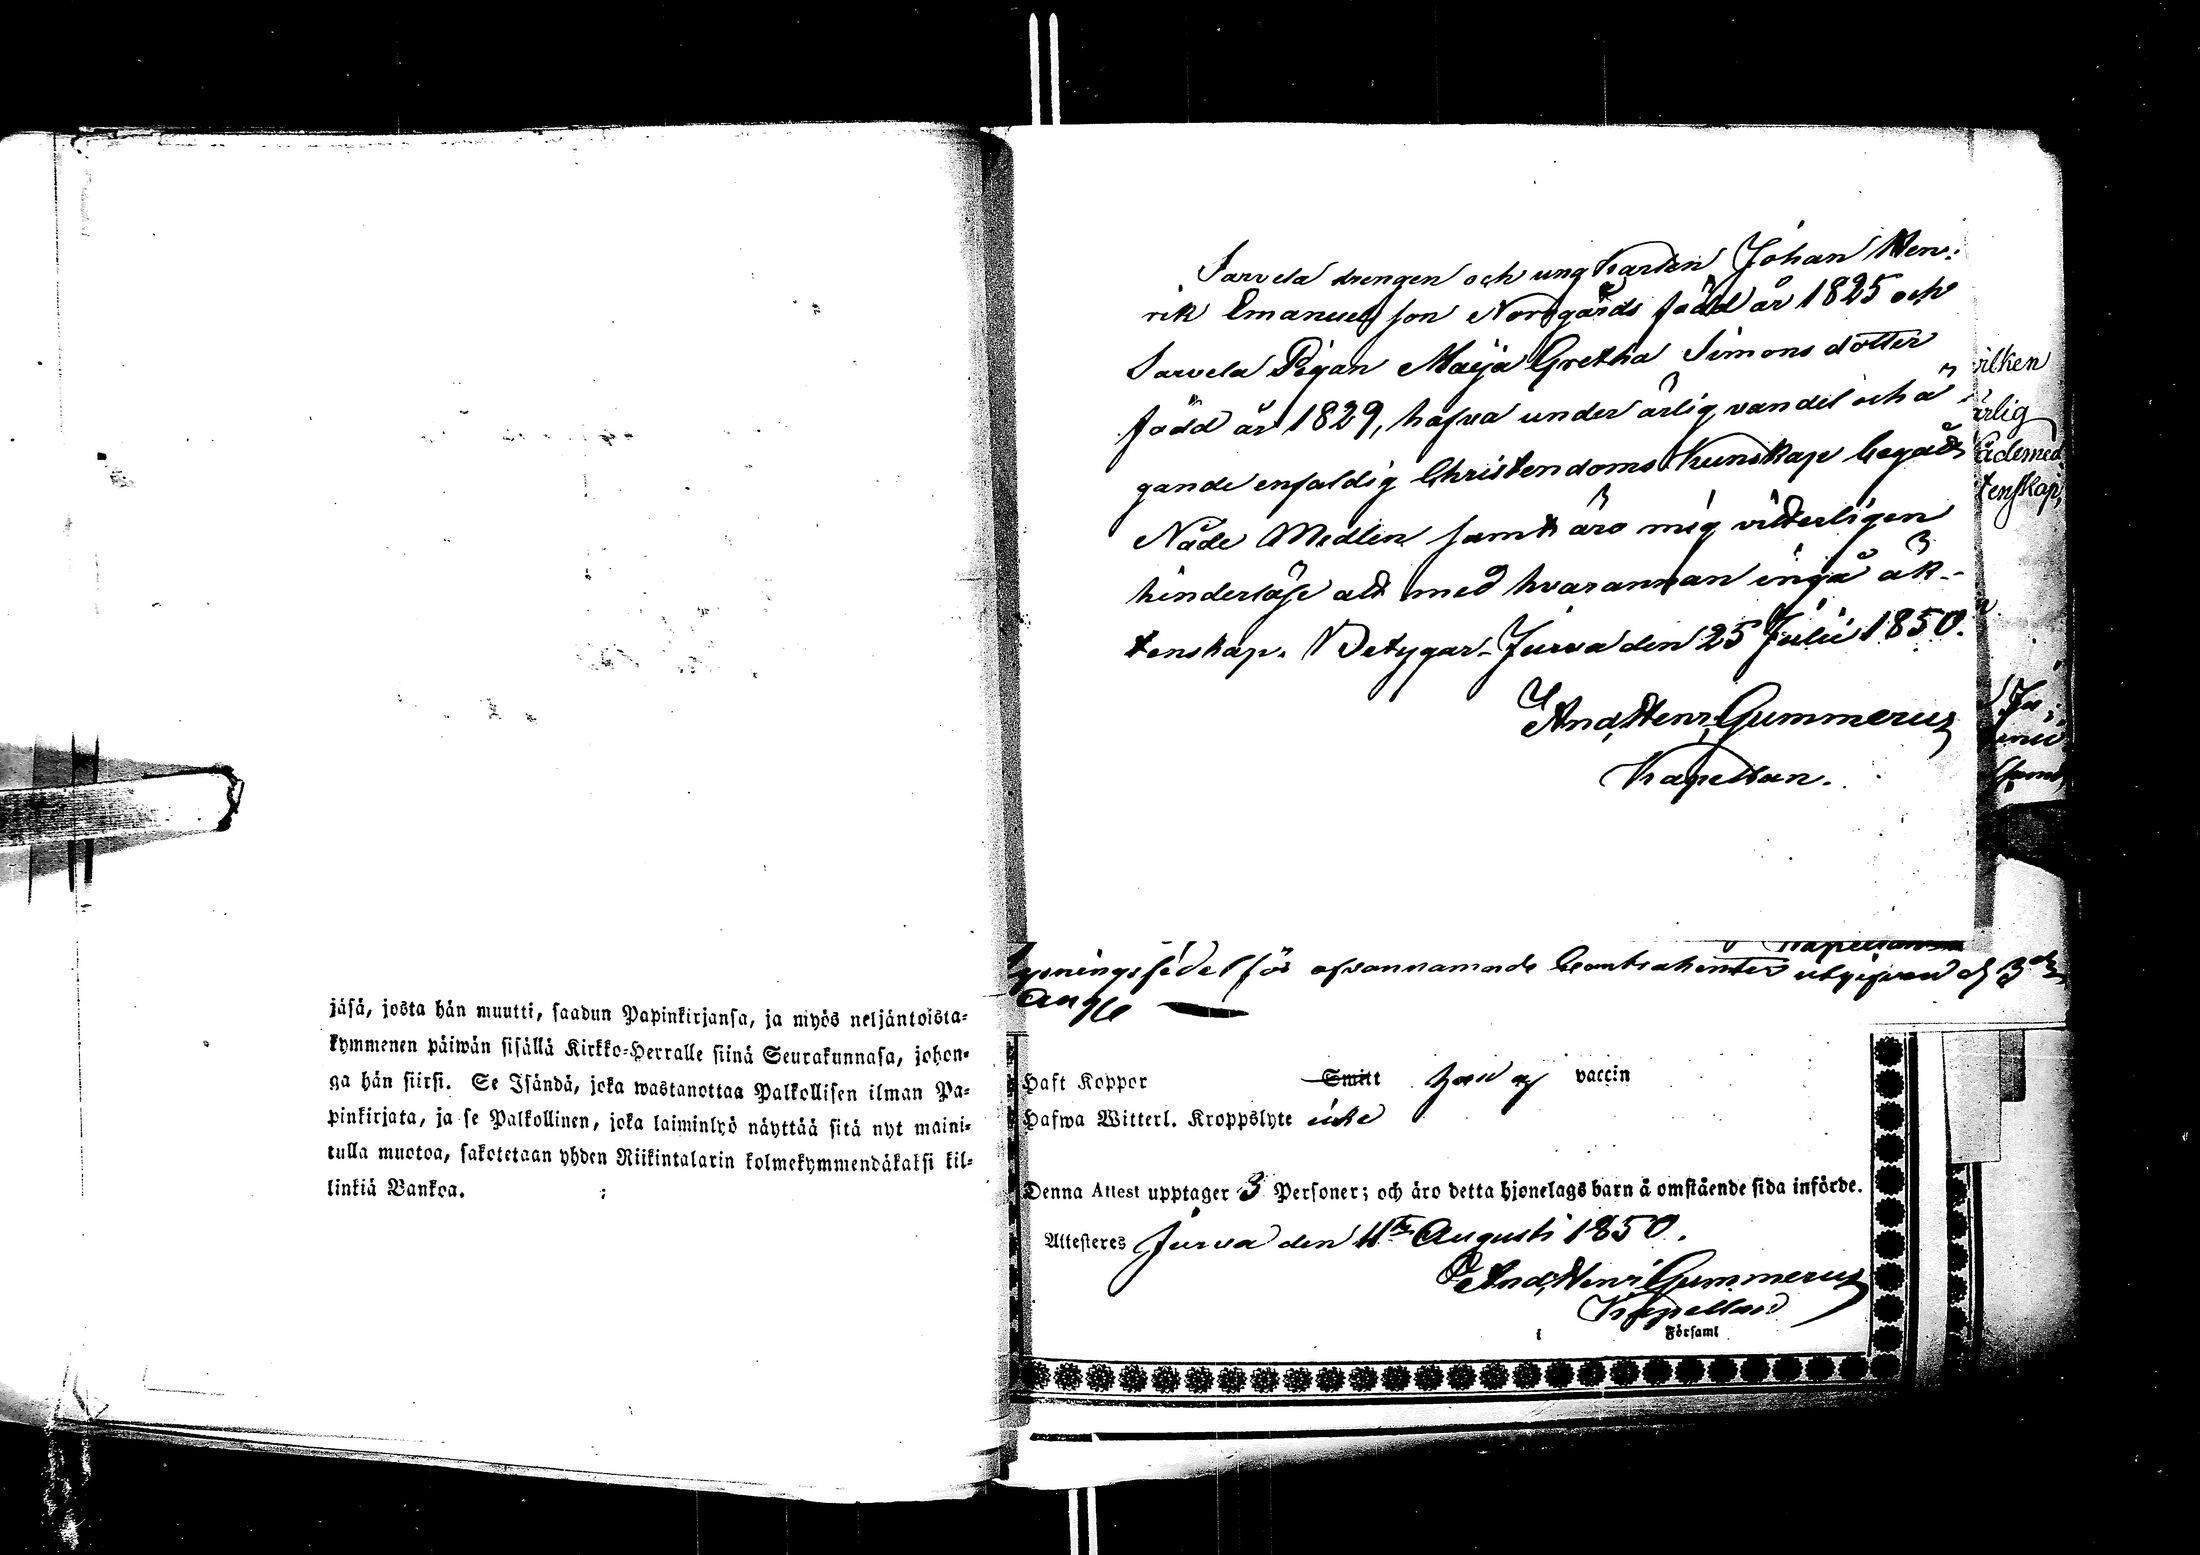 jäsä, josta hän muutti, saadun Papinkirjansa, ja myös neljäntoista-
kymmenen päiwän sisällä Kirkko-Herralle siinä Seurakunnasa, johon-
ga hän siirsi. Se Isändä, joka wastanottaa Palkollisen ilman Pa-
pinkirjata, ja se Palkollinen, joka laiminlyö näyttää sitä nyt maini-
tulla muotoa, sakotetaan yhden Riikintalarin kolmekymmendäkaksi kil-
linkiä Bankoa.
Sarvela drengen och ungkarlen Johan Hen-
rik Emanuelsson Norrgårds född år 1825 och
Sarvela Pigan Maija Gretha Simons dotter
född år 1829, hafva under ärlig vandel och ä
gande enfaldig Christendoms Kunskap begådt
Nåde Medlen samt äro mig vitterligen
hinderlöse att med hvarannan ingå äk-
tenskap. Betygar Jurva den 25 Julii 1850.
And, Henr, Gummerus
Kapellan.
vilken
ärlig
Nådemed
tenskap,
Lysningssedel för ofvannamnde Contrahenter utgifven d 3
Aug
Haft Koppor Smitt vaccin
Hafwa Witterl. Kroppslyte icke
Denna Attest upptager 3 Personer; och äro detta hjonelags barn å omstående sida införde.
Attesteres Jurva den 4 Augusti 1850.
And, Henr Gummerus
Kapellan
i Församl